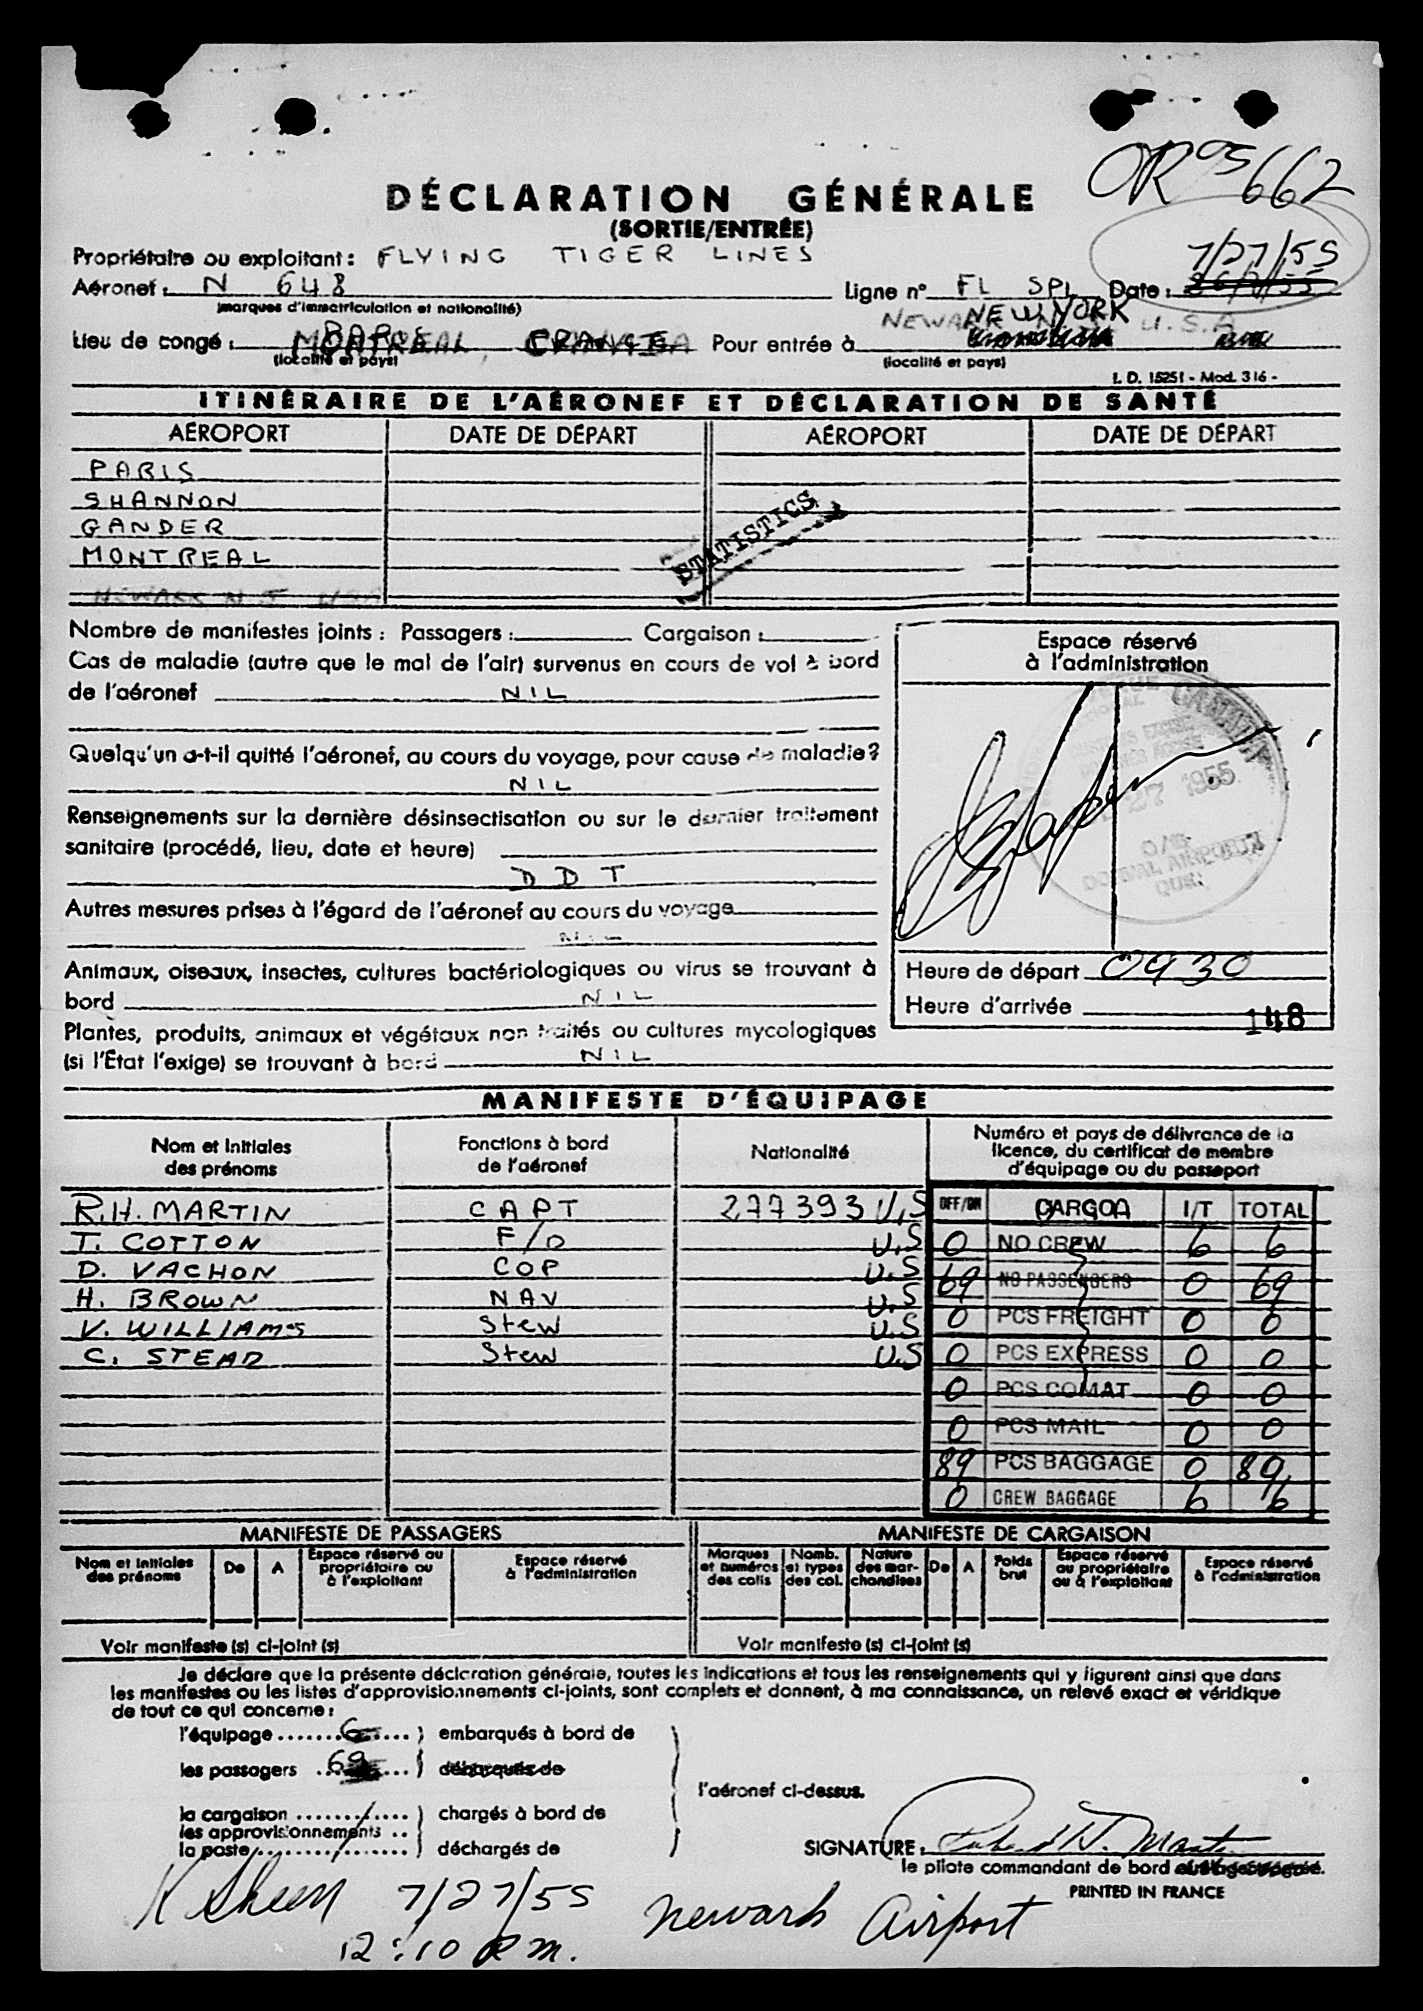 OR 95662
DÉCLARATION GÉNÉRALE
(SORTIE/ENTRÉE)
7/27/55
Propriétaire ou exploitant : FLYING TIGER LINES
Aéronef : N 648 Ligne n° FL SPL Date :
(marques d'immatriculation et nationalité)
NEW YORK
NEWARK U.S.A
Lieu de congé : PARIS MONTREAL, FRANCE Pour entrée à
(localité et pays) (localité et pays)
I. D. 15251 - Mod. 316 -
ITINÉRAIRE DE L'AÉRONEF ET DÉCLARATION DE SANTÉ
AÉROPORT DATE DE DÉPART AÉROPORT DATE DE DÉPART
PARIS
SHANNON
GANDER
MONTREAL
NEWARK N J USA
STATISTICS
Nombre de manifestes joints : Passagers : Cargaison :
Cas de maladie (autre que le mal de l'air) survenus en cours de vol à bord
de l'aéronef NIL
Quelqu'un a-t-il quitté l'aéronef, au cours du voyage, pour cause de maladie ?
NIL
Renseignements sur la dernière désinsectisation ou sur le dernier traitement
sanitaire (procédé, lieu, date et heure)
DDT
Autres mesures prises à l'égard de l'aéronef au cours du voyage
NIL
Animaux, oiseaux, insectes, cultures bactériologiques ou virus se trouvant à
bord NIL
Plantes, produits, animaux et végétaux non traités ou cultures mycologiques
(si l'État l'exige) se trouvant à bord NIL
Espace réservé
à l'administration
CANADA
27 1955
DORVAL AIRPORT
QUE.
Heure de départ 0930
Heure d'arrivée
148
MANIFESTE D'ÉQUIPAGE
Nom et Initiales des prénoms Fonctions à bord de l'aéronef Nationalité Numéro et pays de délivrance de la licence, du certificat de membre d'équipage ou du passeport
R.H. MARTIN CAPT 277393 U.S
T. COTTON F/O U.S
D. VACHON COP U.S
H. BROWN NAV U.S
V. WILLIAMS Stew U.S
C. STEAD Stew U.S
OFF/ON CARGOA I/T TOTAL
0 NO CREW 6 6
69 NO PASSENGERS 0 69
0 PCS FREIGHT 0 0
0 PCS EXPRESS 0 0
0 PCS COMAT 0 0
0 PCS MAIL 0 0
89 PCS BAGGAGE 0 89
0 CREW BAGGAGE 6 6
MANIFESTE DE PASSAGERS MANIFESTE DE CARGAISON
Nom et Initiales des prénoms De A Espace réservé au propriétaire ou à l'exploitant Espace réservé à l'administration
Marques et numéros des colis Nomb. et types des col. Nature des marchandises De A Poids brut Espace réservé au propriétaire ou à l'exploitant Espace réservé à l'administration
Voir manifeste (s) ci-joint (s) Voir manifeste (s) ci-joint (s)
Je déclare que la présente déclaration générale, toutes les indications et tous les renseignements qui y figurent ainsi que dans
les manifestes ou les listes d'approvisionnements ci-joints, sont complets et donnent, à ma connaissance, un relevé exact et véridique
de tout ce qui concerne :
l'équipage 6 ) embarqués à bord de
les passagers 69 ) débarqués de
l'aéronef ci-dessus.
la cargaison ) chargés à bord de
les approvisionnements
la poste ) déchargés de
SIGNATURE :
le pilote commandant de bord
PRINTED IN FRANCE
K Skeen 7/27/55 Newark Airport
12:10 P M.